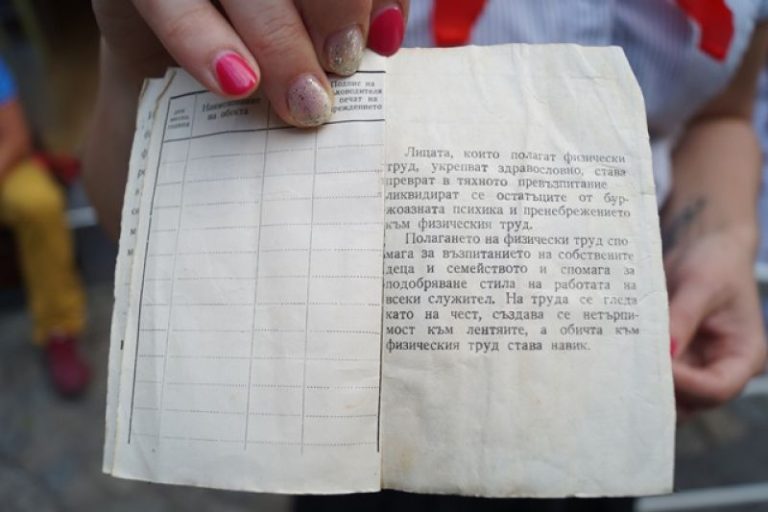 ден
месец
година
Наименование
на обекта
Подпис на
ководителя
печат на
реждението
Лицата, които полагат физически
труд, укрепват здравословно, става
преврат в тяхното превъзпитание
ликвидират се остатъците от бур-
жоазната психика и пренебрежението
към физическия труд.
Полагането на физически труд спо
мага за възпитанието на собствените
деца и семейството и спомага за
подобряване стила на работата на
всеки служител. На труда се гледа
като на чест, създава се нетърпи-
мост към лентяите, а обичта към
физическия труд става навик.